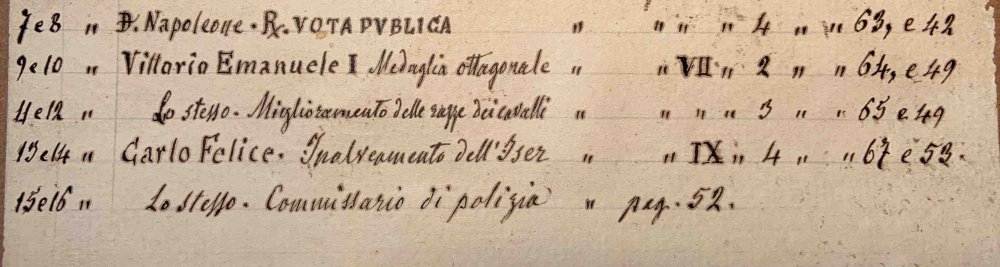 7 e 8 " D. Napoleone. R. VOTA PVBLICA " " " 4 " " 63, e 42
9 e 10 " Vittorio Emanuele I Medaglia ottagonale " " VII " 2 " " 64, e 49
4 e 12 " Lo stesso. Miglioramento delle razze dei cavalli " " " " 3 " 65 e 49
13 e 14 " Carlo Felice. Inalveamento dell'Iser " " IX " 4 " " 67 e 53.
15 e 16 " Lo stesso. Commissario di polizia " pag. 52.